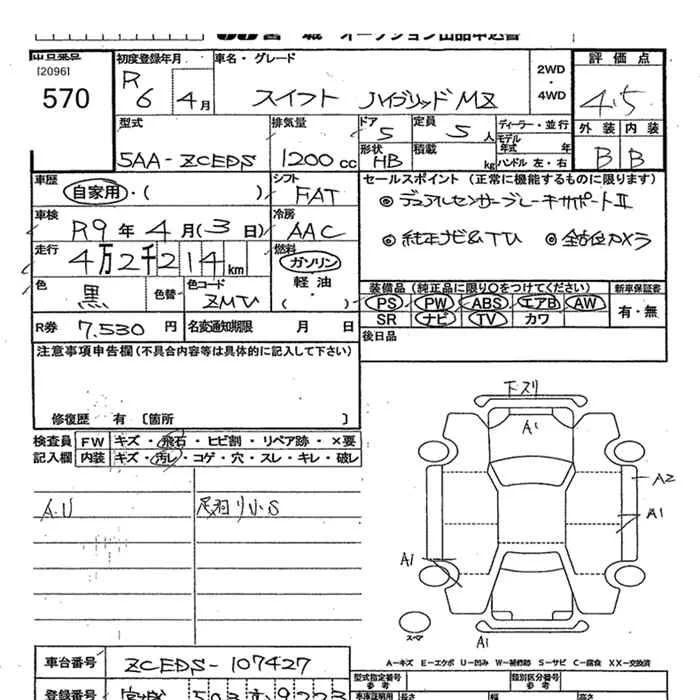 オークション出品申込書
出品番号
[2096]
570
初度登録年月 車名・グレード
R6 4月 スイフト ハイブリッドMZ
2WD・4WD
評価点
4.5
外装 内装
B B
型式 排気量 ドア 定員 ディーラー・並行
5AA-ZCEDS 1200cc 5 5人
モデル年式 年
形状 積載 ハンドル 左・右
HB kg
車歴 自家用・( )
シフト FAT
車検 R9年4月(3日)
冷房 AAC
走行 4万2千214km
燃料 ガソリン・軽油・( )
色 黒 色替 色コード ZMV
R券 7.530円 名変通知期限 月 日
セールスポイント (正常に機能するものに限ります)
◎デュアルセンサーブレーキサポートⅡ
◎純正ナビ&TV ◎全方位カメラ
装備品(純正品に限り○をつけてください) 新車保証書
PS PW ABS エアB AW 有・無
SR ナビ TV カワ
後日品
注意事項申告欄(不具合内容等は具体的に記入して下さい)
修復歴 有 〔箇所 〕
検査員記入欄
FW キズ・飛石・ヒビ割・リペア跡・×要
内装 キズ・汚レ・コゲ・穴・スレ・キレ・破レ
A.U
小S
下スリ
A1
A2
A1
A1
A1
スマ
A-キズ E-エクボ U-凹み W-補修跡 S-サビ C-腐食 XX-交換済
車台番号 ZCEDS-107427
型式指定番号 類別区分番号
登録番号
参考 車庫証明用 長さ 幅 高さ